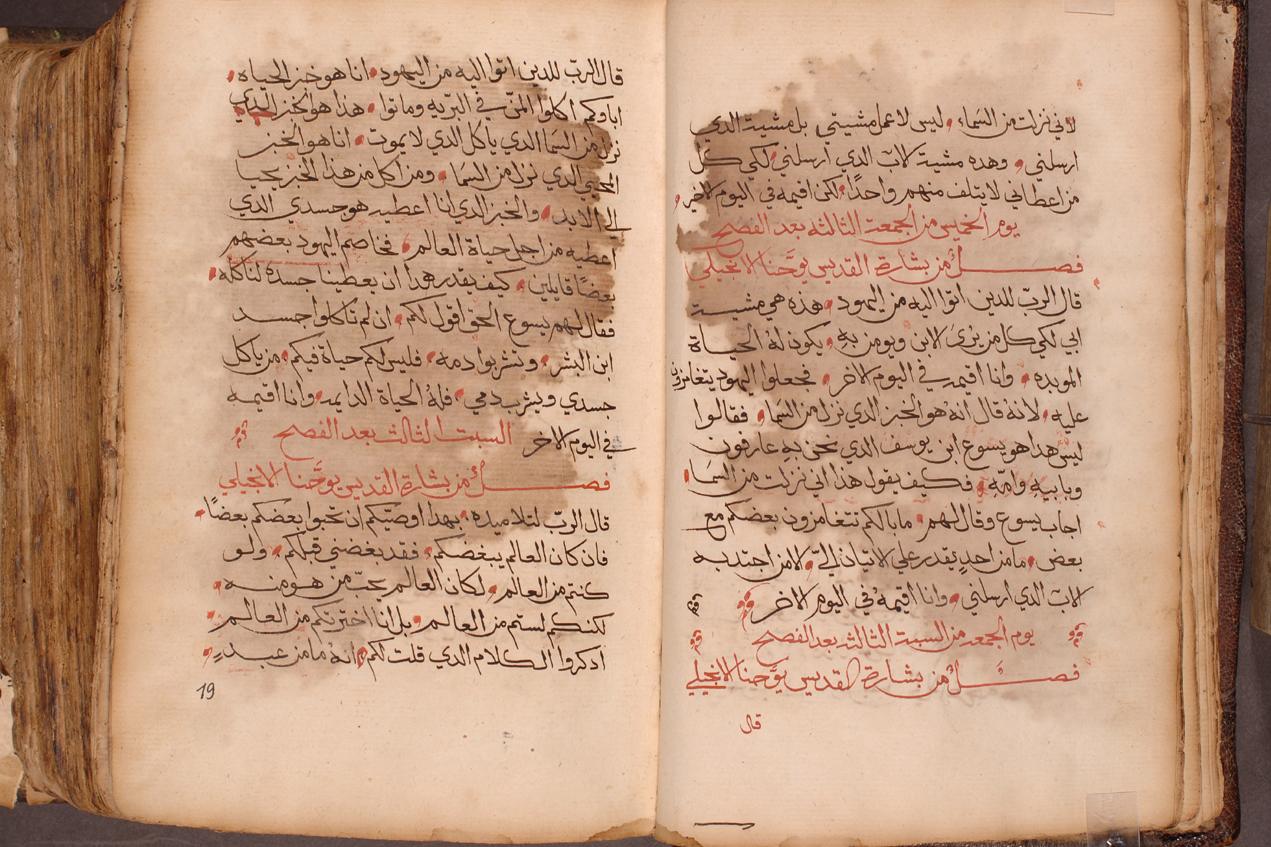 لاني نزلت من السماء، ليس لاعمل مشيتي بل مشيت الدي
ارسلني، وهده مشيت الاب الدي ارسلني لكي كل
من اعطاني لا يتلف منهم واحدًا لكن اقيمه في اليوم الاخر
يوم الخميس من الجمعه الثالثه بعد الفصح
فصل من بشارة القديس يوحنا الانجيلي
قال الرب للدين اتوا اليه من اليهود، هذه هي مشيت
ابي لكي كل من يرى الابن ويومن به، يكون له الحياة
الموبده، وانا اقيمه في اليوم الاخر، فجعلوا اليهود يتغامزون
عليه، لانه قال انه هو الخبز الدي نزل من السما، فقالوا
ليس هدا هو يسوع ابن يوسف الدي نحن به عارفون
وبابيه وامه، فكيف يقول هذا اني نزلت من السما
اجاب يسوع وقال لهم، ما بالكم تتغامزون بعضكم مع
بعض، ما من احدٍ يقدر على الاتيان الي، الا من اجتدبه
الاب الدي ارسلني، وانا اقيمه في اليوم الاخر
يوم الجمعه من السبت الثالث بعد الفصح
فصل من بشارة القديس يوحنا الانجيلي
قال
قال الرب للدين اتوا اليه من اليهود، انا هو خبز الحياه
اباوكم اكلوا المن في البريه وماتوا، هذا هو الخبز الدي
نزل من السما الدي ياكل الدي لا يموت، انا هو الخبز
المحيي الدي نزل من السما، ومن اكل من هذا الخبز يحيا
الى الابد، والخبز الدي انا اعطيه هو جسدي الدي
اعطيه من اجل حياة العالم، فخاصم اليهود بعضهم
بعضًا قايلين، كيف يقدر هدا ان يعطينا جسده لناكله
فقال لهم يسوع الحق اقول لكم، ان لم تاكلوا جسد
ابن البشر، وتشربوا دمه، فليس لكم حياة فيكم، من ياكل
جسدي ويشرب دمي، فله الحياة الدايمه، وانا اقيمه
في اليوم الاخر السبت الثالث بعد الفصح
فصل من بشارة القديس يوحنا الانجيلي
قال الرب لتلاميده، بهدا اوصيكم ان تحبوا بعضكم بعضًا
فان كان العالم يبغضكم، فقد بغضني قبلكم، ولو
كنتم من العالم، لكان العالم يحب من هو منه
لكنكم لستم من العالم، بل انا اخترتكم من العالم
ادكروا الكلام الدي قلت لكم، انه ما من عبدٍ
19